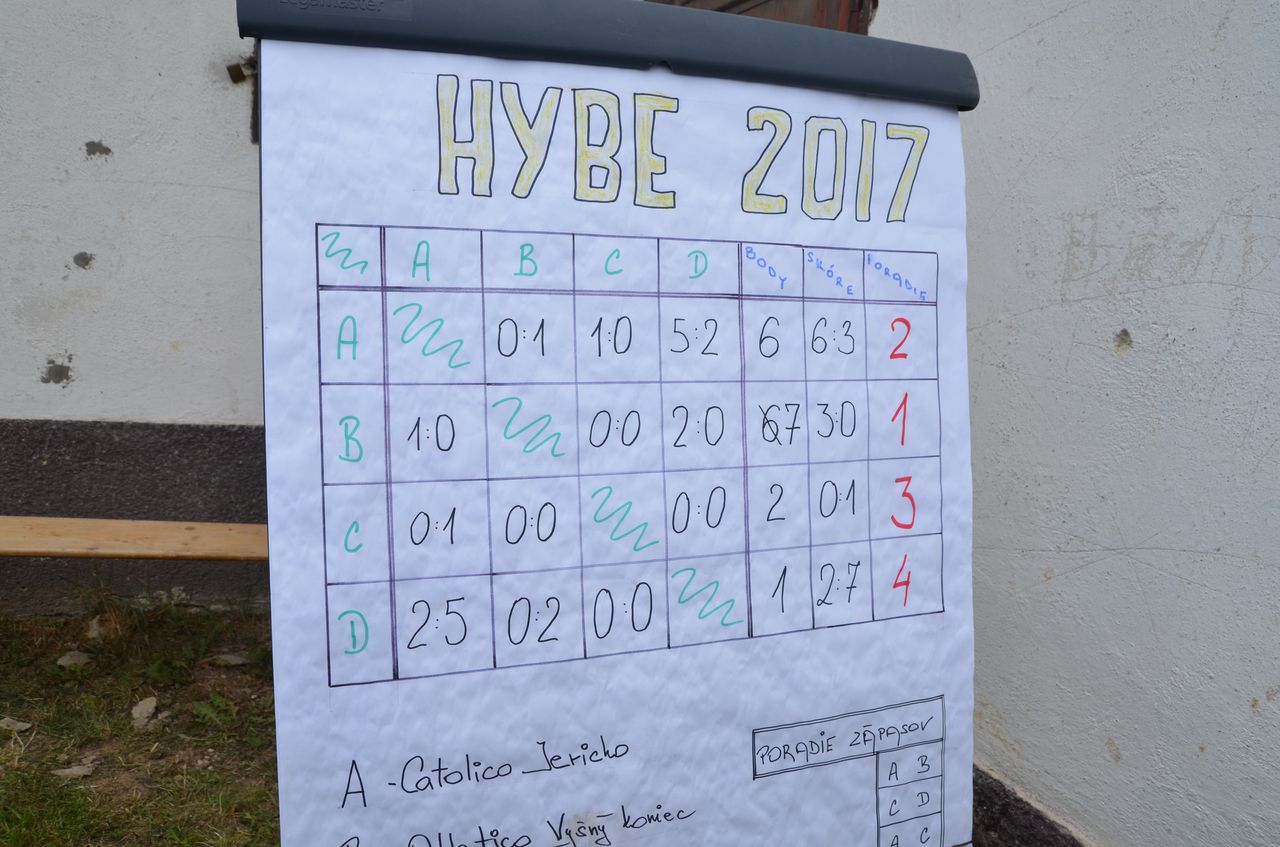 Legamaster
HYBE 2017
A B C D BODY SKÓRE PORADIE
A 0:1 1:0 5:2 6 6:3 2
B 1:0 0:0 2:0 7 3:0 1
C 0:1 0:0 0:0 2 0:1 3
D 2:5 0:2 0:0 1 2:7 4
A - Catolico Jericho
Vyšný koniec
PORADIE ZÁPASOV
A B
C D
A C